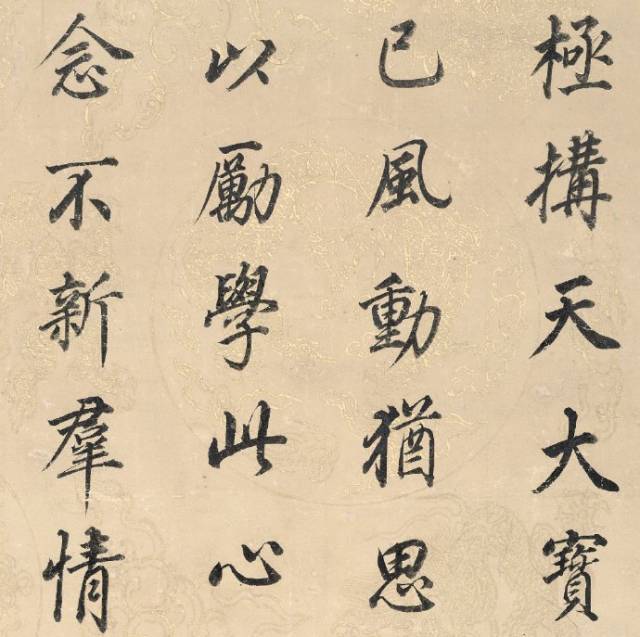 極搆天大寶
已風動猶思
以勵學此心
念不新羣情